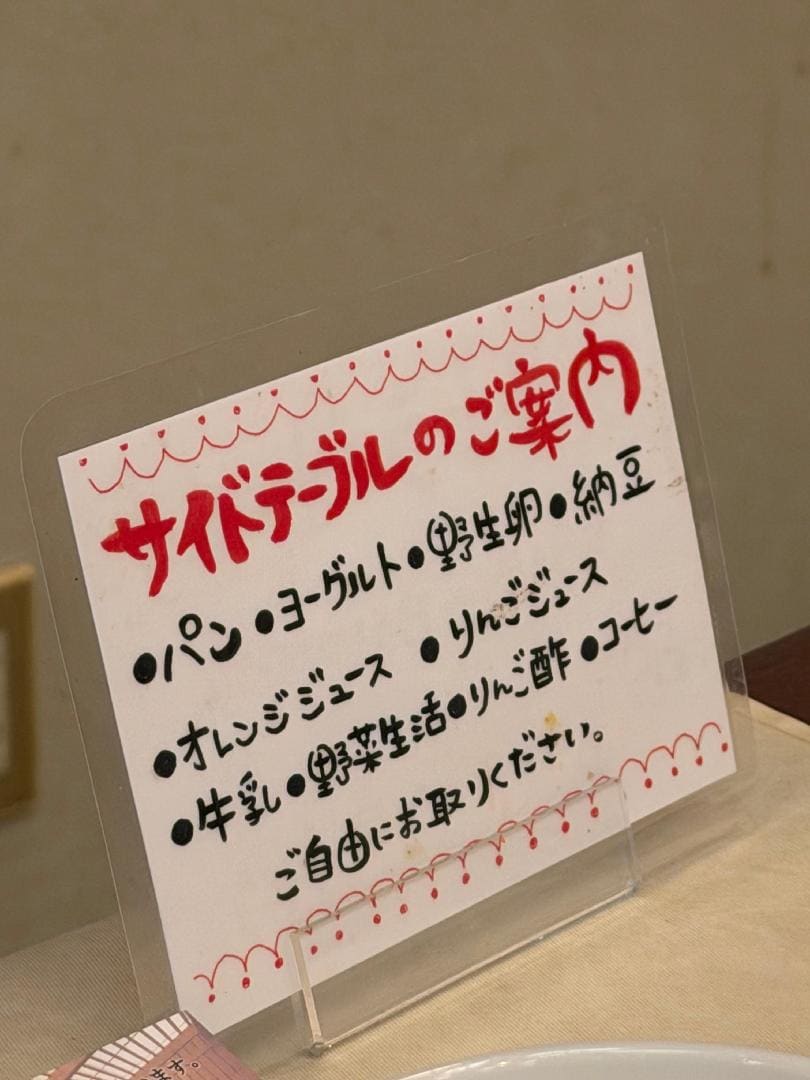 サイドテーブルのご案内
●パン ●ヨーグルト ●野生卵 ●納豆
●オレンジジュース ●りんごジュース
●牛乳 ●野菜生活 ●りんご酢 ●コーヒー
ご自由にお取りください。
ます。